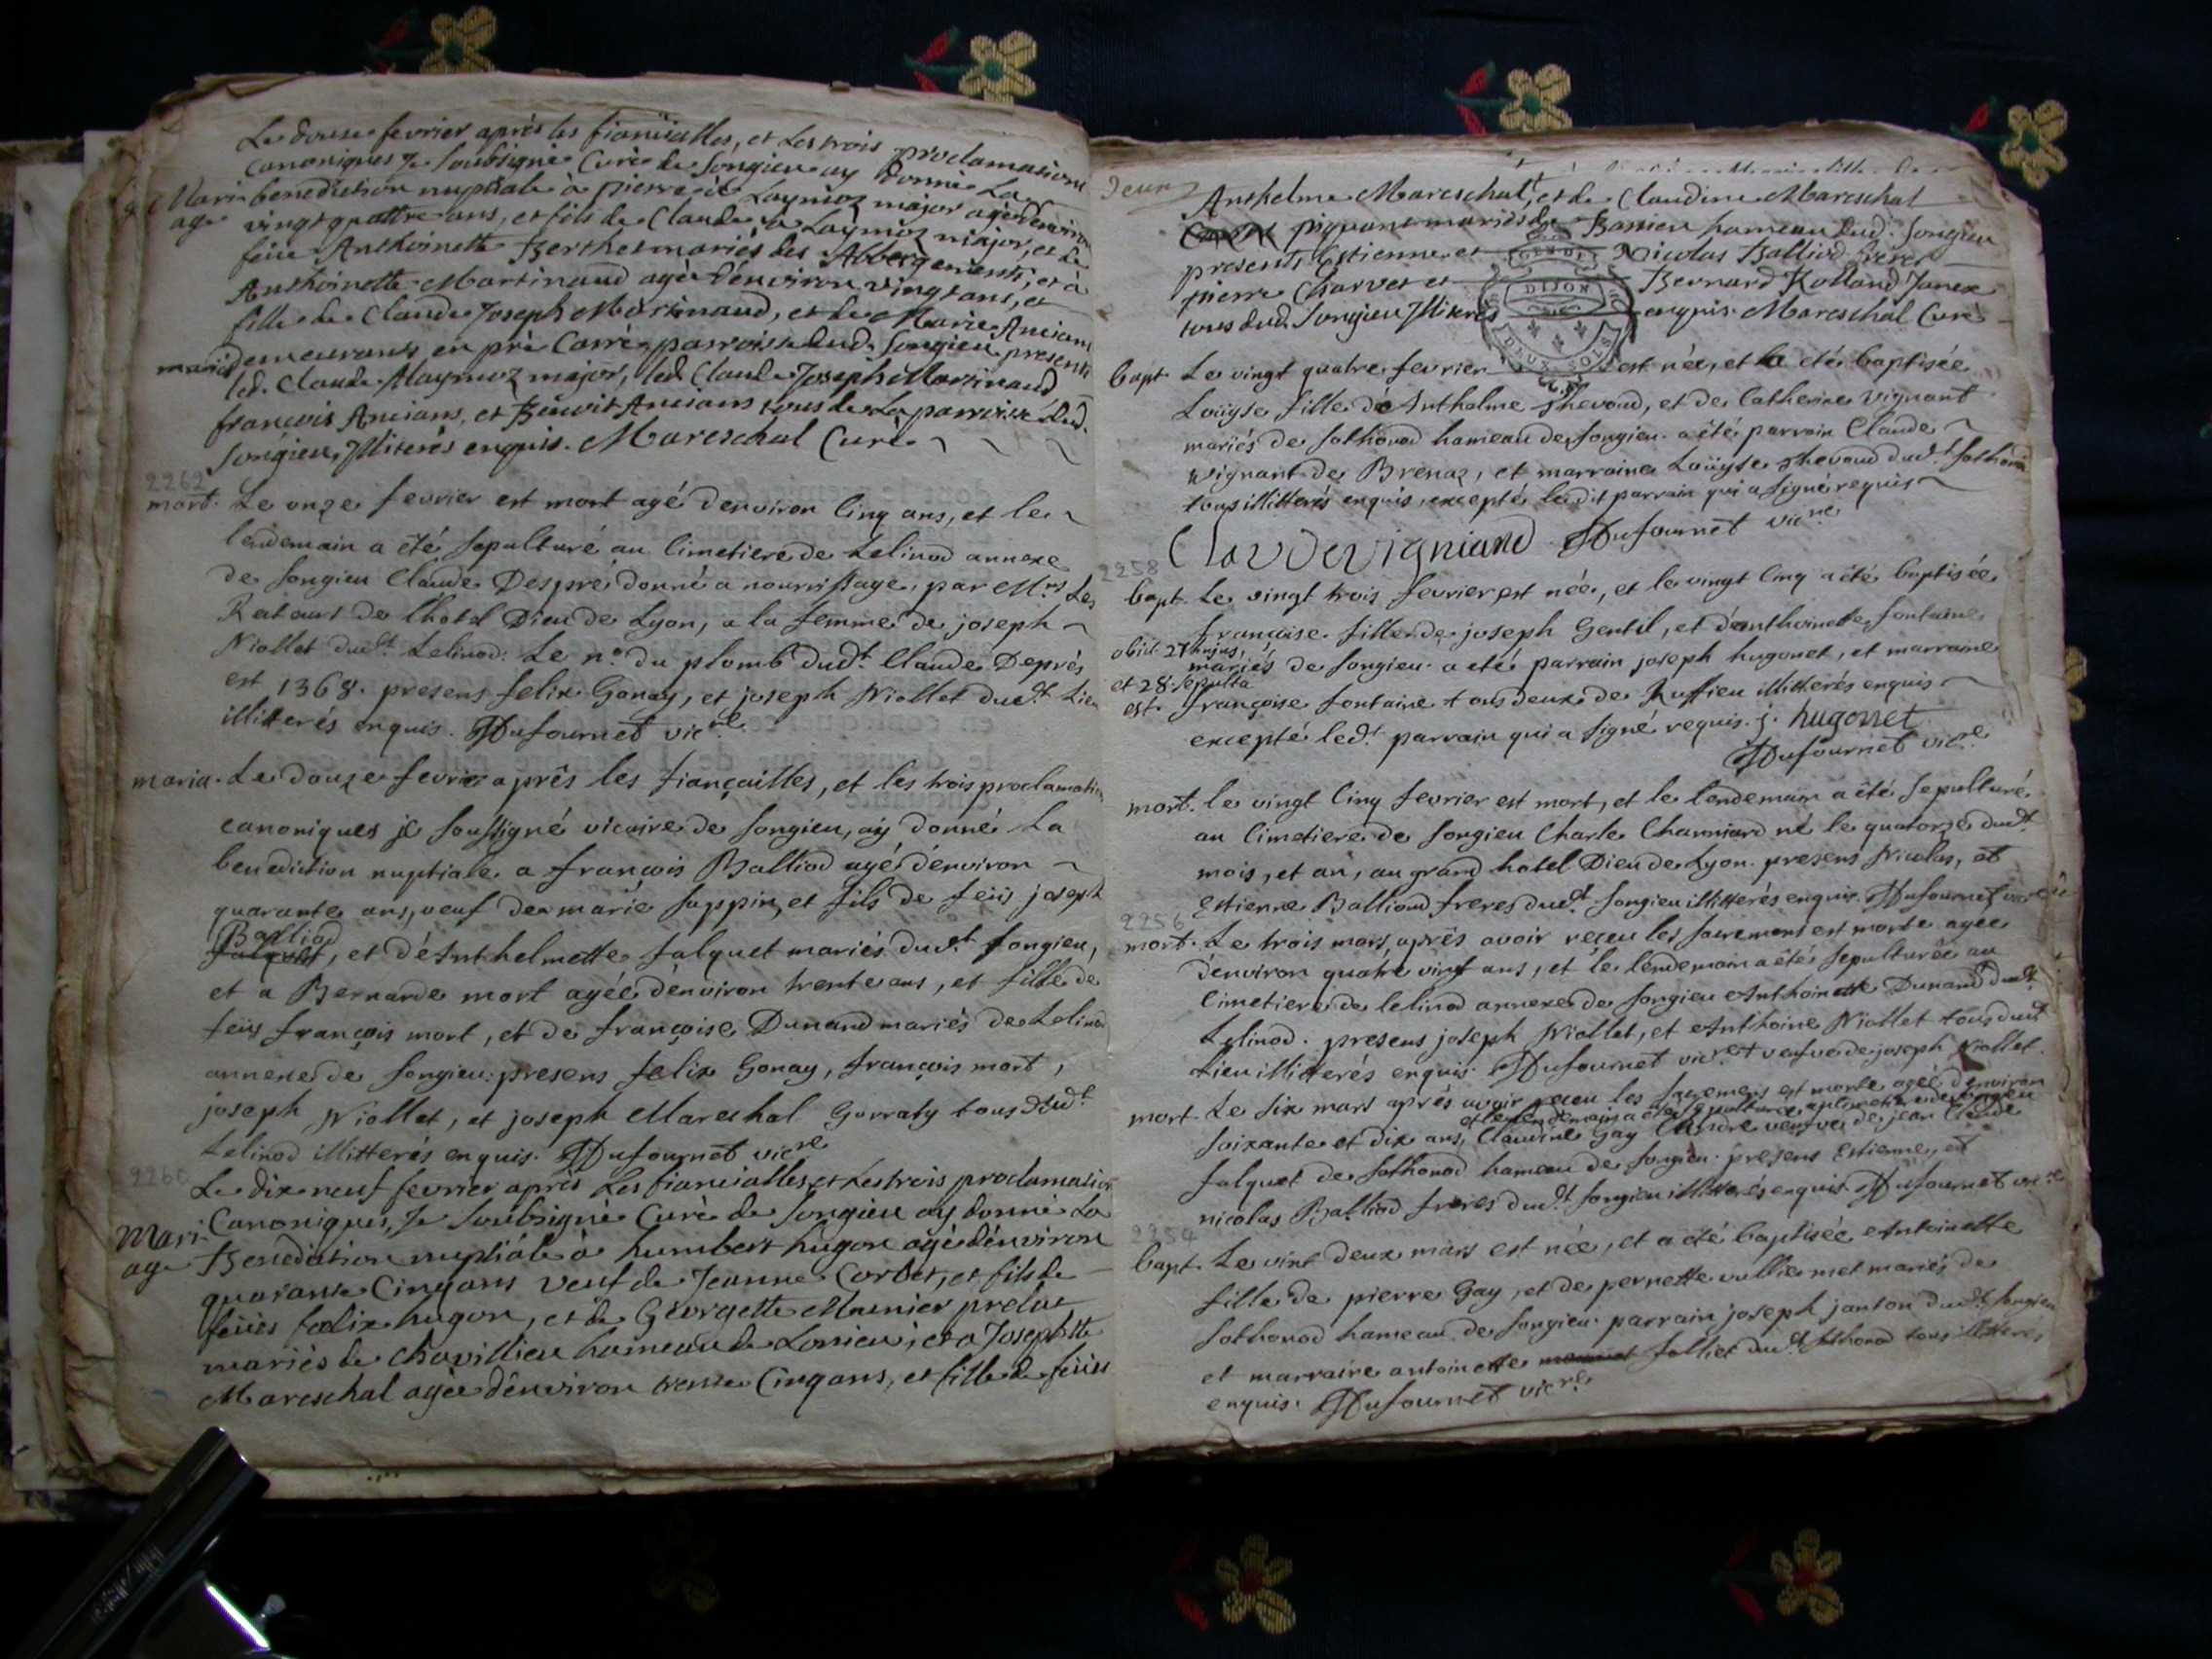 Le douse fevrier après les fiansialles, et Les trois proclamations
Canoniques Je soubsigné Curé de Songieu ay donné La
Mari
age
benediction nuptiale à pierre Laymoz major agé denviron
vingt quattre ans, et fils de Claude Laymoz major, et de
feüe Anthoinette Berthet mariés des Abbergements, et à
Anthoinette Martinaud agée d'environ vingt ans, et
fille de Claude Joseph Martinaud, et de Marie Ancians
mariés demeurants en pré Carré parroisse dud. Songieu presents
led. Claude Laymoz major, led. Claude Joseph Martinaud
françois Ancians, et Benoit Ancians tous de La parroisse dud.
Songieu, Illiterés enquis. Mareschal Curé
2262
mort. Le onze fevrier est mort agé denviron Cinq ans, et le
lendemain a été sepulturé au Cimetiere de Lelinod annexe
de Songieu Claude Despré donné a nourrissage, par Mrs Les
Rateurs de l'hotel Dieu de Lyon, a la femme de joseph
Niollet dudt Lelinod. Le no. du plomb dudt Claude Deprés
est 1368. presens felix Gonay, et joseph Niollet dudt Lieu
illitterés enquis. Dufournet vicre
maria. Le douze fevrier aprês les fiançailles, et les trois proclamations
canoniques je soussigné vicaire de Songieu, aÿ donné La
benediction nuptiale a françois Balliod agé d'environ
quarante ans, veuf de marie suppin, et fils de feüs joseph
Balliod
falquet, et d'Anthelmette falquet mariés dudt Songieu,
et a Bernarde mort agée d'environ trente ans, et fille de
feüs françois mort, et de françoise Dunand mariés de Lelinod
annexe de Songieu: presens felix Gonay, françois mort,
joseph Niollet, et joseph Marechal Gorraty tous dudt
Lelinod illitterés enquis. Dufournet vicre
2260
Le dix neuf fevrier après Les fiansialles, et Les trois proclamations
Mari
age
Canoniques, Je Soubsigné Curé de Songieu ay donné La
Benediction nuptiale à humbert hugon agé d'environ
quarante Cinq ans veuf de Jeanne Corbet, et fils de
feües felix hugon, et de Georgette Munier prelat
mariés de Chavillieu hameau de Lonieu, et a Josephtte
Mareschal agée d'environ trente Cinq ans, et fille de feües
Anthelme Mareschal, et de Claudine Mareschal
piquant mariés de Bassieu hameau dud. Songieu
presents Estienne et Nicolas Balliod freres
pierre Charvet et Bernard Rolland Janex
tous dud. Songieu Illiterés enquis. Mareschal Curé
DIJON
DEUX SOLS
bapt. Le vingt quatre fevrier est née, et a été baptisée
Loüyse fille d'Anthelme Thevoud, et de Catherine vignant
mariés de Sothonod hameau de Songieu. a été parrain Claude
vignant de Brenaz, et marraine Loüyse Thevoud dudt Sothonod
tous illitterés enquis, excepté ledit parrain qui a signé requis
Clavdevigniand Dufournet vicre
2258
bapt. Le vingt trois fevrier est née, et le vingt Cinq a été baptisée
françoise fille de joseph Gentil, et d'anthoinette fontaine
obiit 27 hujus,
et 28. sepulta
est.
mariés de Songieu. a eté parrain joseph hugonet, et marraine
françoise fontaine tous deux de Ruffieu illitterés enquis
excepté ledt parrain qui a signé requis. j. hugonet
Dufournet vicre
mort. le vingt Cinq fevrier est mort, et le lendemain a été sepulturé
au Cimetiere de Songieu Charle Channiard né le quatorze dudt
mois, et an, au grand hotel Dieu de Lyon. presens Nicolas, et
Estienne Balliod freres dudt Songieu illitterés enquis. Dufournet vicre
2256
mort. Le trois mars, aprés avoir reçeu les sacremens est morte agée
d'environ quatre vint ans, et le lendemain a été sepulturée au
Cimetiere de lelinod annexe de Songieu Anthoinette Dunand dudt
Lelinod. presens joseph Niollet, et Anthoine Niollet tous dudt
Lieu illitterés enquis. Dufournet vicre + veufve de joseph Niollet
mort. Le six mars aprés avoir reçeu les sacremens est morte agée d'environ
et le lendemain a été sepulturée au Cimetiere de Songieu
soixante et dix ans, Claudine Gay veufve de jean Claude
falquet de Sothonod hameau de Songieu. presens Estienne, et
nicolas Balliod freres dudt Songieu illitterés enquis. Dufournet vicre
2254
bapt. Le vint deux mars est née, et a été baptisée Antoinette
fille de pierre Gay, et de pernette vulliermet mariés de
Sothonod hameau de Songieu. parrain joseph janton dudt Songieu
et marraine antoinette folliet dudt Sothonod tous illitterés
enquis. Dufournet vicre